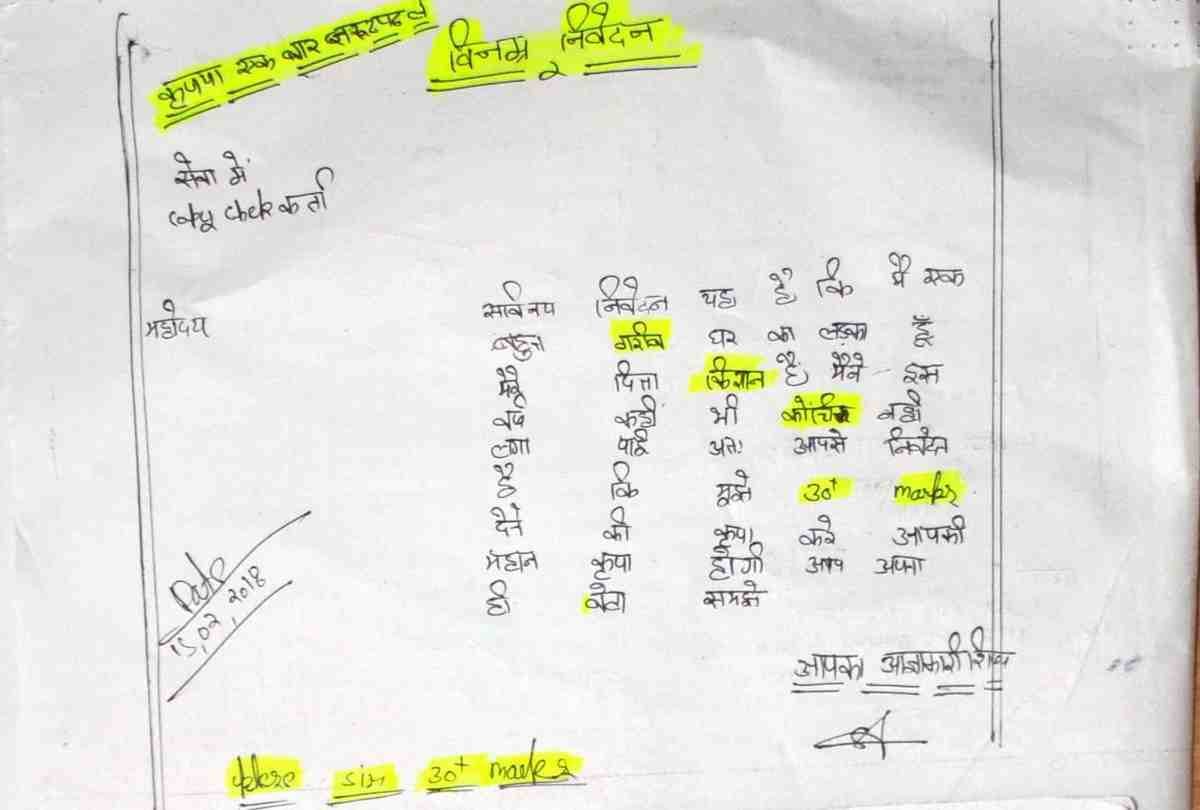 कृपया एक बार जरूर पढ़ ले
विनम्र निवेदन
सेवा में
copy chek कर्ता
महोदय
सविनय निवेदन यह है कि मै एक
बहुत गरीब घर का लड़का हूँ
मेरे पिता किसान है मैने इस
वर्ष कही भी कोचिंग नही
लगा पाई अतः आपसे निवेदन
है कि मुझे 30+ marks
देने की कृपा करे आपकी
महान कृपा होगी आप अपना
ही बेटा समझे
Date
15,02,2018
आपका आज्ञाकारी शिष्य
sir 30+ marks